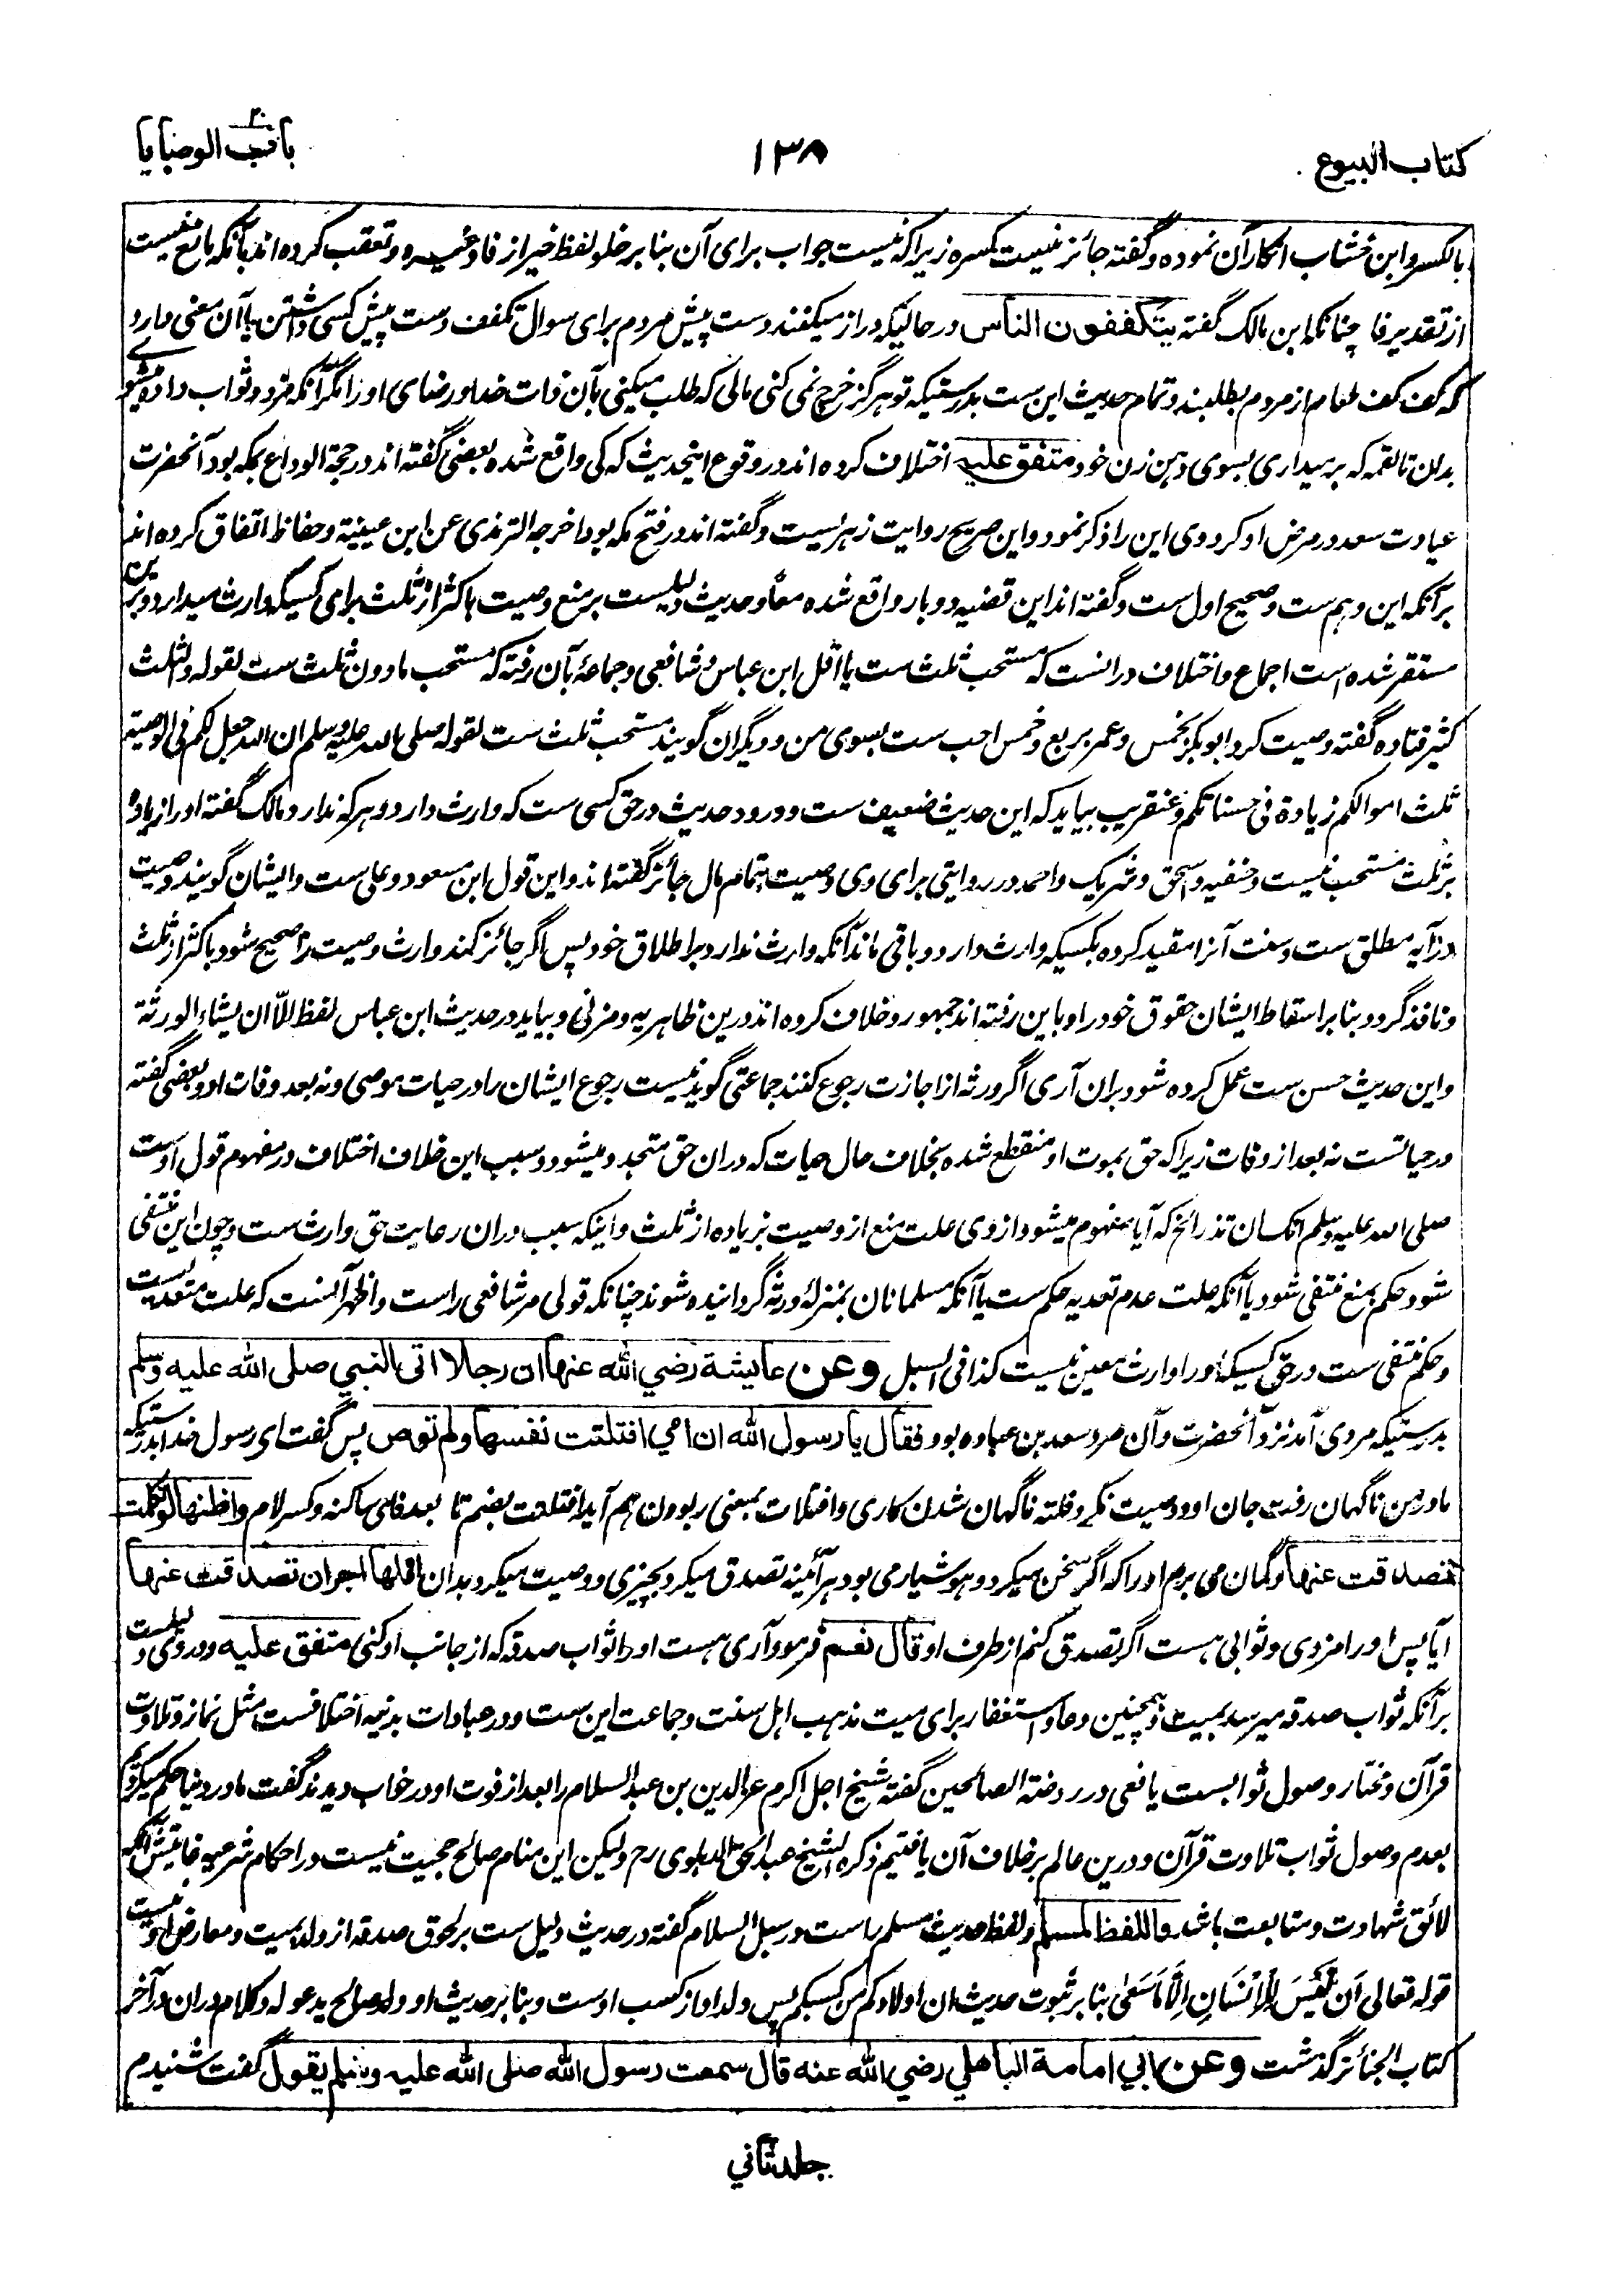 کتاب البیوع
۱۳۸
باب الوصایا
بالکسر و ابن خشاب انکار آن نموده و گفته جائز نیست کسره زیرا که نیست جواب برای آن بنا بر خلو لفظ خیر از فا و غیره و تعقب کرده اند بآنکه مانع نیست
از تقدیر فا چنانکه ابن مالک گفته یتکففون الناس در حالیکه دراز میکنند دست پیش مردم برای سوال تکفف دست پیش کسی داشتن یا آن معنی دارد
که کف کف طعام از مردم بطلبند و تمام حدیث این ست بدرستیکه تو هرگز خرچ نمی کنی مالی که طلب میکنی بآن ذات خدا و رضای او را مگر آنکه مزد و ثواب داده میشوی
بدان تا لقمه که بر میداری بسوی دهن زن خود متفق علیه اختلاف کرده اند در وقوع اینحدیث که کی واقع شده بعضی گفته اند در حجة الوداع بمکه بود آنحضرت
عیادت سعد در مرض او کرد وی این را ذکر نمود و این صریح روایت زهریست و گفته اند در فتح مکه بود اخرجه الترمذی عن ابن عیینة و حفاظ اتفاق کرده اند
بر آنکه این وهم ست و صحیح اول ست و گفته اند این قضیه دو بار واقع شده معا و حدیث دلیلست بر منع وصیت باکثر از ثلث برای کسیکه وارث میدارد و برین
مستقر شده است اجماع و اختلاف در آنست که مستحب ثلث ست یا اقل ابن عباس و شافعی و جماعة بآن رفته که مستحب مادون ثلث ست لقوله والثلث
کثیر قتاده گفته وصیت کرد ابوبکر بخمس و عمر بربع و خمس احب ست بسوی من و دیگران گویند مستحب ثلث ست لقوله صلی الله علیه وسلم ان الله جعل لکم فی الوصیة
ثلث اموالکم زیادة فی حسناتکم و عنقریب بیاید که این حدیث ضعیف ست و ورود حدیث در حق کسی ست که وارث دارد و هر که ندارد مالک گفته او را زیاده
بر ثلث مستحب نیست و حنفیه و اسحق و شریک و احمد در روایتی برای وی وصیت بتمام مال جائز گفته اند و این قول ابن مسعود و علی ست و ایشان گویند وصیت
در آیه مطلق ست و سنت آنرا مقید کرده بکسیکه وارث دارد و باقی ماند آنکه وارث ندارد بر اطلاق خود پس اگر جائز کند وارث وصیت را صحیح شود باکثر از ثلث
و نافذ گردد بنا بر اسقاط ایشان حقوق خود را و باین رفته اند جمهور و خلاف کرده اند درین ظاهریه و مزنی و بیاید در حدیث ابن عباس لفظ الا ان یشاء الورثة
و این حدیث حسن ست عمل کرده شود بران آری اگر ورثه از اجازت رجوع کنند جماعتی گویند نیست رجوع ایشان را در حیات موصی و نه بعد وفات او و بعضی گفته
در حیاتست نه بعد از وفات زیرا که حق بموت او منقطع شده بخلاف حال حیات که دران حق متجدد میشود و سبب این خلاف اختلاف در مفهوم قول اوست
صلی الله علیه وسلم انک ان تذر الخ که آیا مفهوم میشود از وی علت منع از وصیت بزیاده از ثلث و اینکه سبب دران رعایت حق وارث ست و چون این منتفی
شود حکم بمنع منتفی شود یا آنکه علت عدم تعدیه حکم ست یا آنکه مسلمانان بمنزلهٔ ورثه گردانیده شوند چنانکه قولی مر شافعی راست و اظهر آنست که علت متعدیست
و حکم منتفی ست در حق کسیکه او را وارث معین نیست کذا فی السبل وعن عایشة رضی الله عنها ان رجلا اتی النبی صلی الله علیه وسلم
بدرستیکه مردی آمد نزد آنحضرت و آن مرد سعد بن عباده بود فقال یا رسول الله ان امی افتلتت نفسها ولم توص پس گفت ای رسول خدا بدرستیکه
مادر من ناگهان رفت جان او و وصیت نکرد و فلته ناگهان شدن کاری و افتلات بمعنی ربودن هم آید افتلتت بضم تا بعد فای ساکنه و کسر لام واظنها لو تکلمت
تصدقت عنها و گمان می برم او را که اگر سخن میکرد و هوشیار می بود هر آئینه تصدق میکرد بچیزی و وصیت میکرد بدان افلها اجر ان تصدقت عنها
آیا پس او را مزدی و ثوابی هست اگر تصدق کنم از طرف او قال نعم فرمود آری هست او را ثواب صدقه که از جانب او کنی متفق علیه و در وی دلیلست
بر آنکه ثواب صدقه میرسد بمیت و همچنین دعا و استغفار برای میت مذهب اهل سنت و جماعت این ست و در عبادات بدنیه اختلافست مثل نماز و تلاوت
قرآن و مختار وصول ثوابست یافعی در روضة الصالحین گفته شیخ اجل اکرم عز الدین بن عبد السلام را بعد از فوت او در خواب دیدند گفت ما در دنیا حکم میکردیم
بعدم وصول ثواب تلاوت قرآن و درین عالم بر خلاف آن یافتیم ذکره الشیخ عبد الحق الدهلوی رح ولیکن این منام صالح حجیت نیست در احکام شرعیه غایتش آنکه
لائق شهادت و متابعت باشد واللفظ لمسلم و لفظ حدیث مسلم راست در سبل السلام گفته در حدیث دلیل ست بر لحوق صدقه از ولد بمیت و معارض او نیست
قوله تعالی اَن لَّيْسَ لِلْاِنْسَانِ اِلَّا مَا سَعٰی بنا بر ثبوت حدیث ان اولادکم من کسبکم پس ولد او از کسب اوست و بنا بر حدیث او ولد صالح یدعو له و کلام دران در آخر
کتاب الجنائز گذشت وعن ابی امامة الباهلی رضی الله عنه قال سمعت رسول الله صلی الله علیه وسلم یقول گفت شنیدم
جلد ثانی